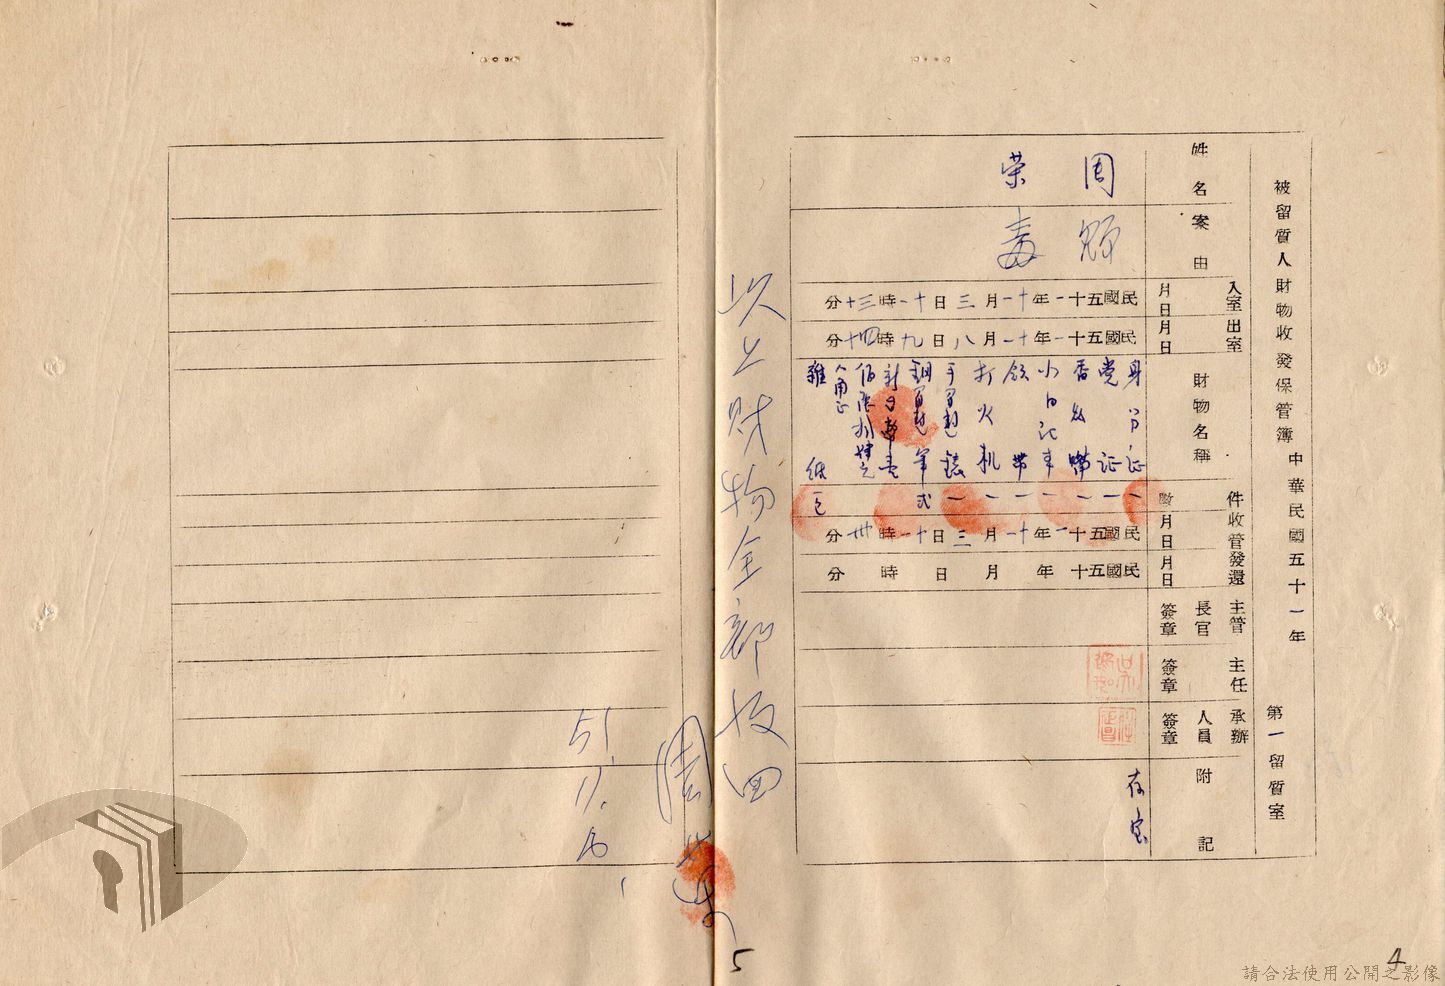 被留質人財物收發保管簿
中華民國五十一年
第一留質室
姓名
周榮
案由
入室月日
民國五十一年十一月三日十一時三十分
出室月日
民國五十一年十一月八日九時四十分
財物名稱
身分証
党証
香烟嘴
小日記本
領帶
打火机
手錶
鋼筆
雜紙
件數
一
一
一
一
一
一
一
弍
收管月日
民國五十一年十一月三日十一時卅分
發還月日
民國五十年月日時分
主管長官簽章
主任簽章
承辦人員簽章
附記
存室
以上財物全部收回
周榮
51.11.8
5
4
請合法使用公開之影像